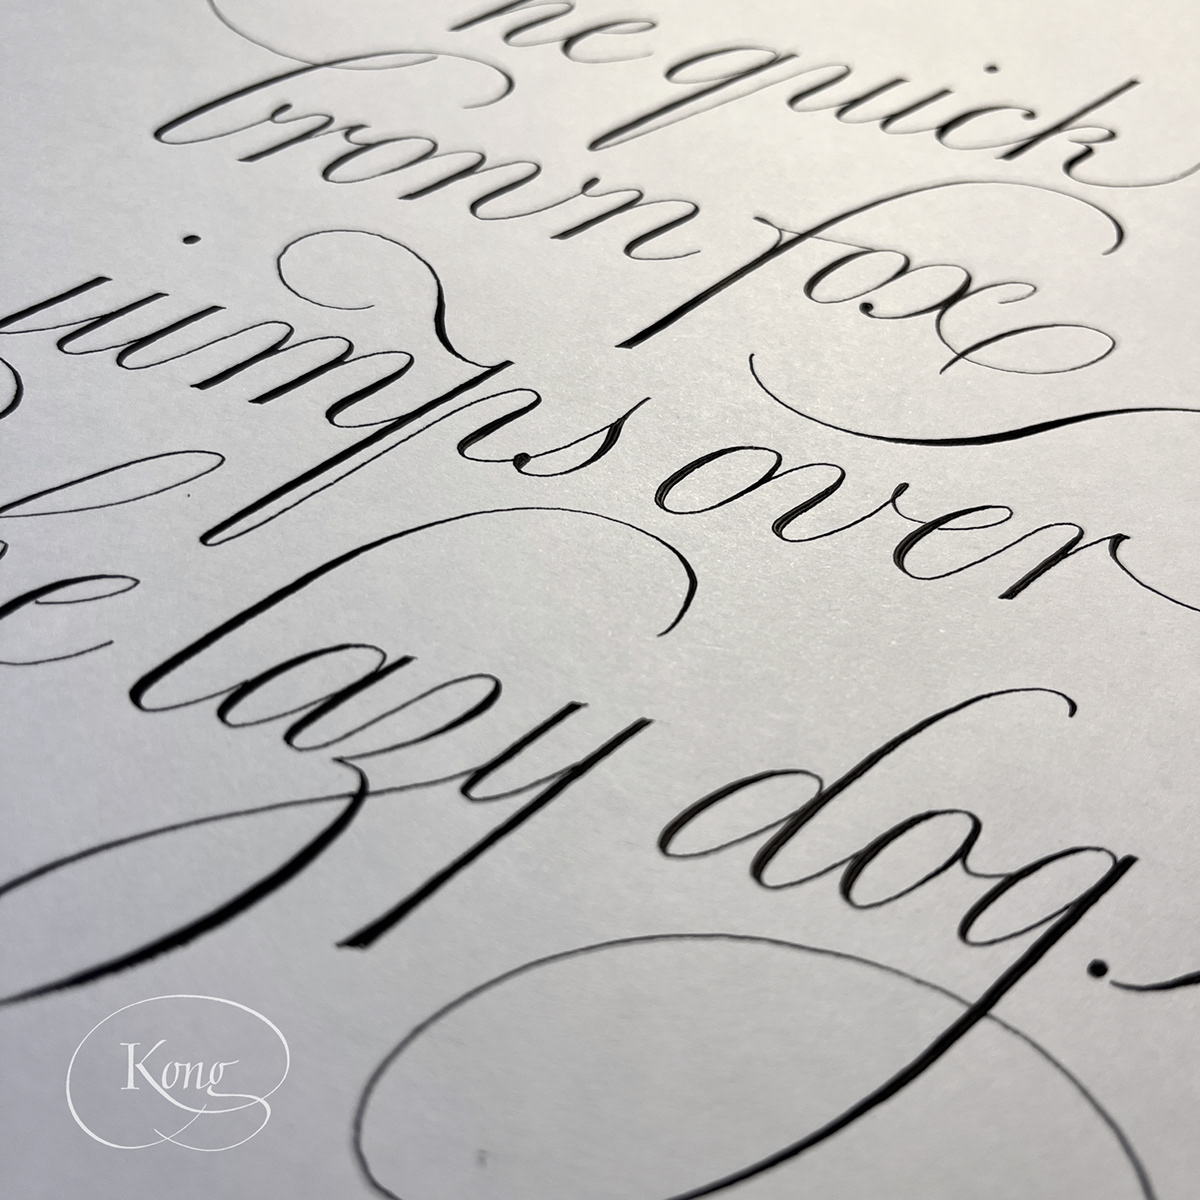 he quick
brown fox
jumps over
he lazy dog.
Kong